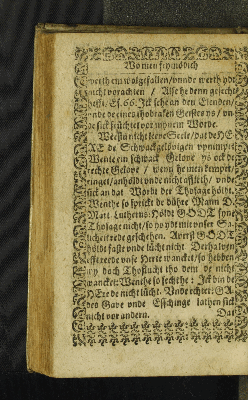 Wo men sick mödich
werth em wolgefallen / vnnde werth ydt
nicht vorachten / Alse he denn gesecht
hefft / Es. 66. Ick sehe an den Elenden /
vnde de eines thobraken Geistes ys / vn
de sick früchtet vor mynem Worde.
Wethstu nicht leue Seele / dat de HE
RE de Schwackgelövigen nicht
Wente ein schwack Gelove ys ock de
rechte Gelove / wenn he men
ringet / anholdt vnde nicht affleth / vnde
sick an dat Wordt der Thosage holdt.
Wenthe so sprickt de dühre Mann D.
Mart. Lutherus: Holdt GODT syne
Thosage nicht / so ys ydt mit vnser Sa-
licheit rede geschehen. Averst GODT
holdt faste vnde lücht nicht. Derhalven
offt rede vnse Herte wancket / so hebben
wy doch Thoflucht tho dem de nicht
wancket: Wenthe so secht he: Ick bin de
HEre de nicht lücht. Vnde echter: GOT
des Gave vnde Esschinge lathen sick
nicht vorandern.
Dat